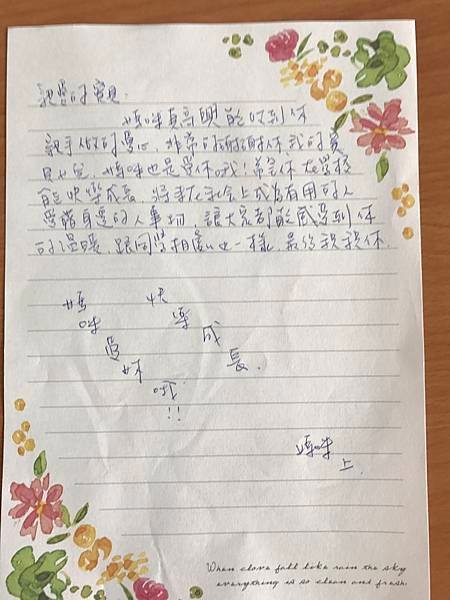 親愛的寶貝:
媽咪真高興能收到你
親手做的愛心，非常的謝謝你我的寶
貝女兒，媽咪也是愛你哦!希望你在學校
能快樂成長，將來在社會上成為有用的人
愛惜身邊的人事物，讓大家都能感受到你
的溫暖，跟同學相處也一樣，最後親親你.
媽咪愛妳哦!!
快樂成長.
媽咪
上.
When clove fall like rain the sky
everything is so clean and fresh.